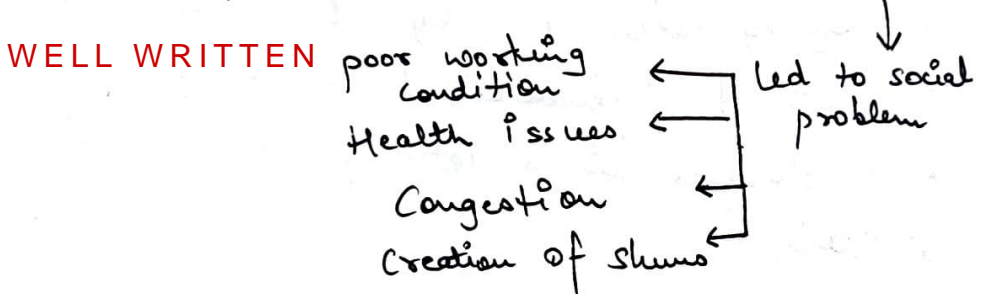 WELL WRITTEN
poor working
condition
Health issues
Congestion
Creation of slums
Led to social
problem